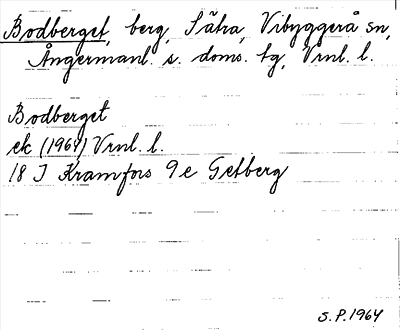 Bodberget, berg, Sälva, Vibyggerå sn,
Ångermanl. s. doms. tg, Vrnl. l.
Bodberget
ek (1964) Vrnl. l.
18 J Kramfors 9e Getberg
S.P. 1964